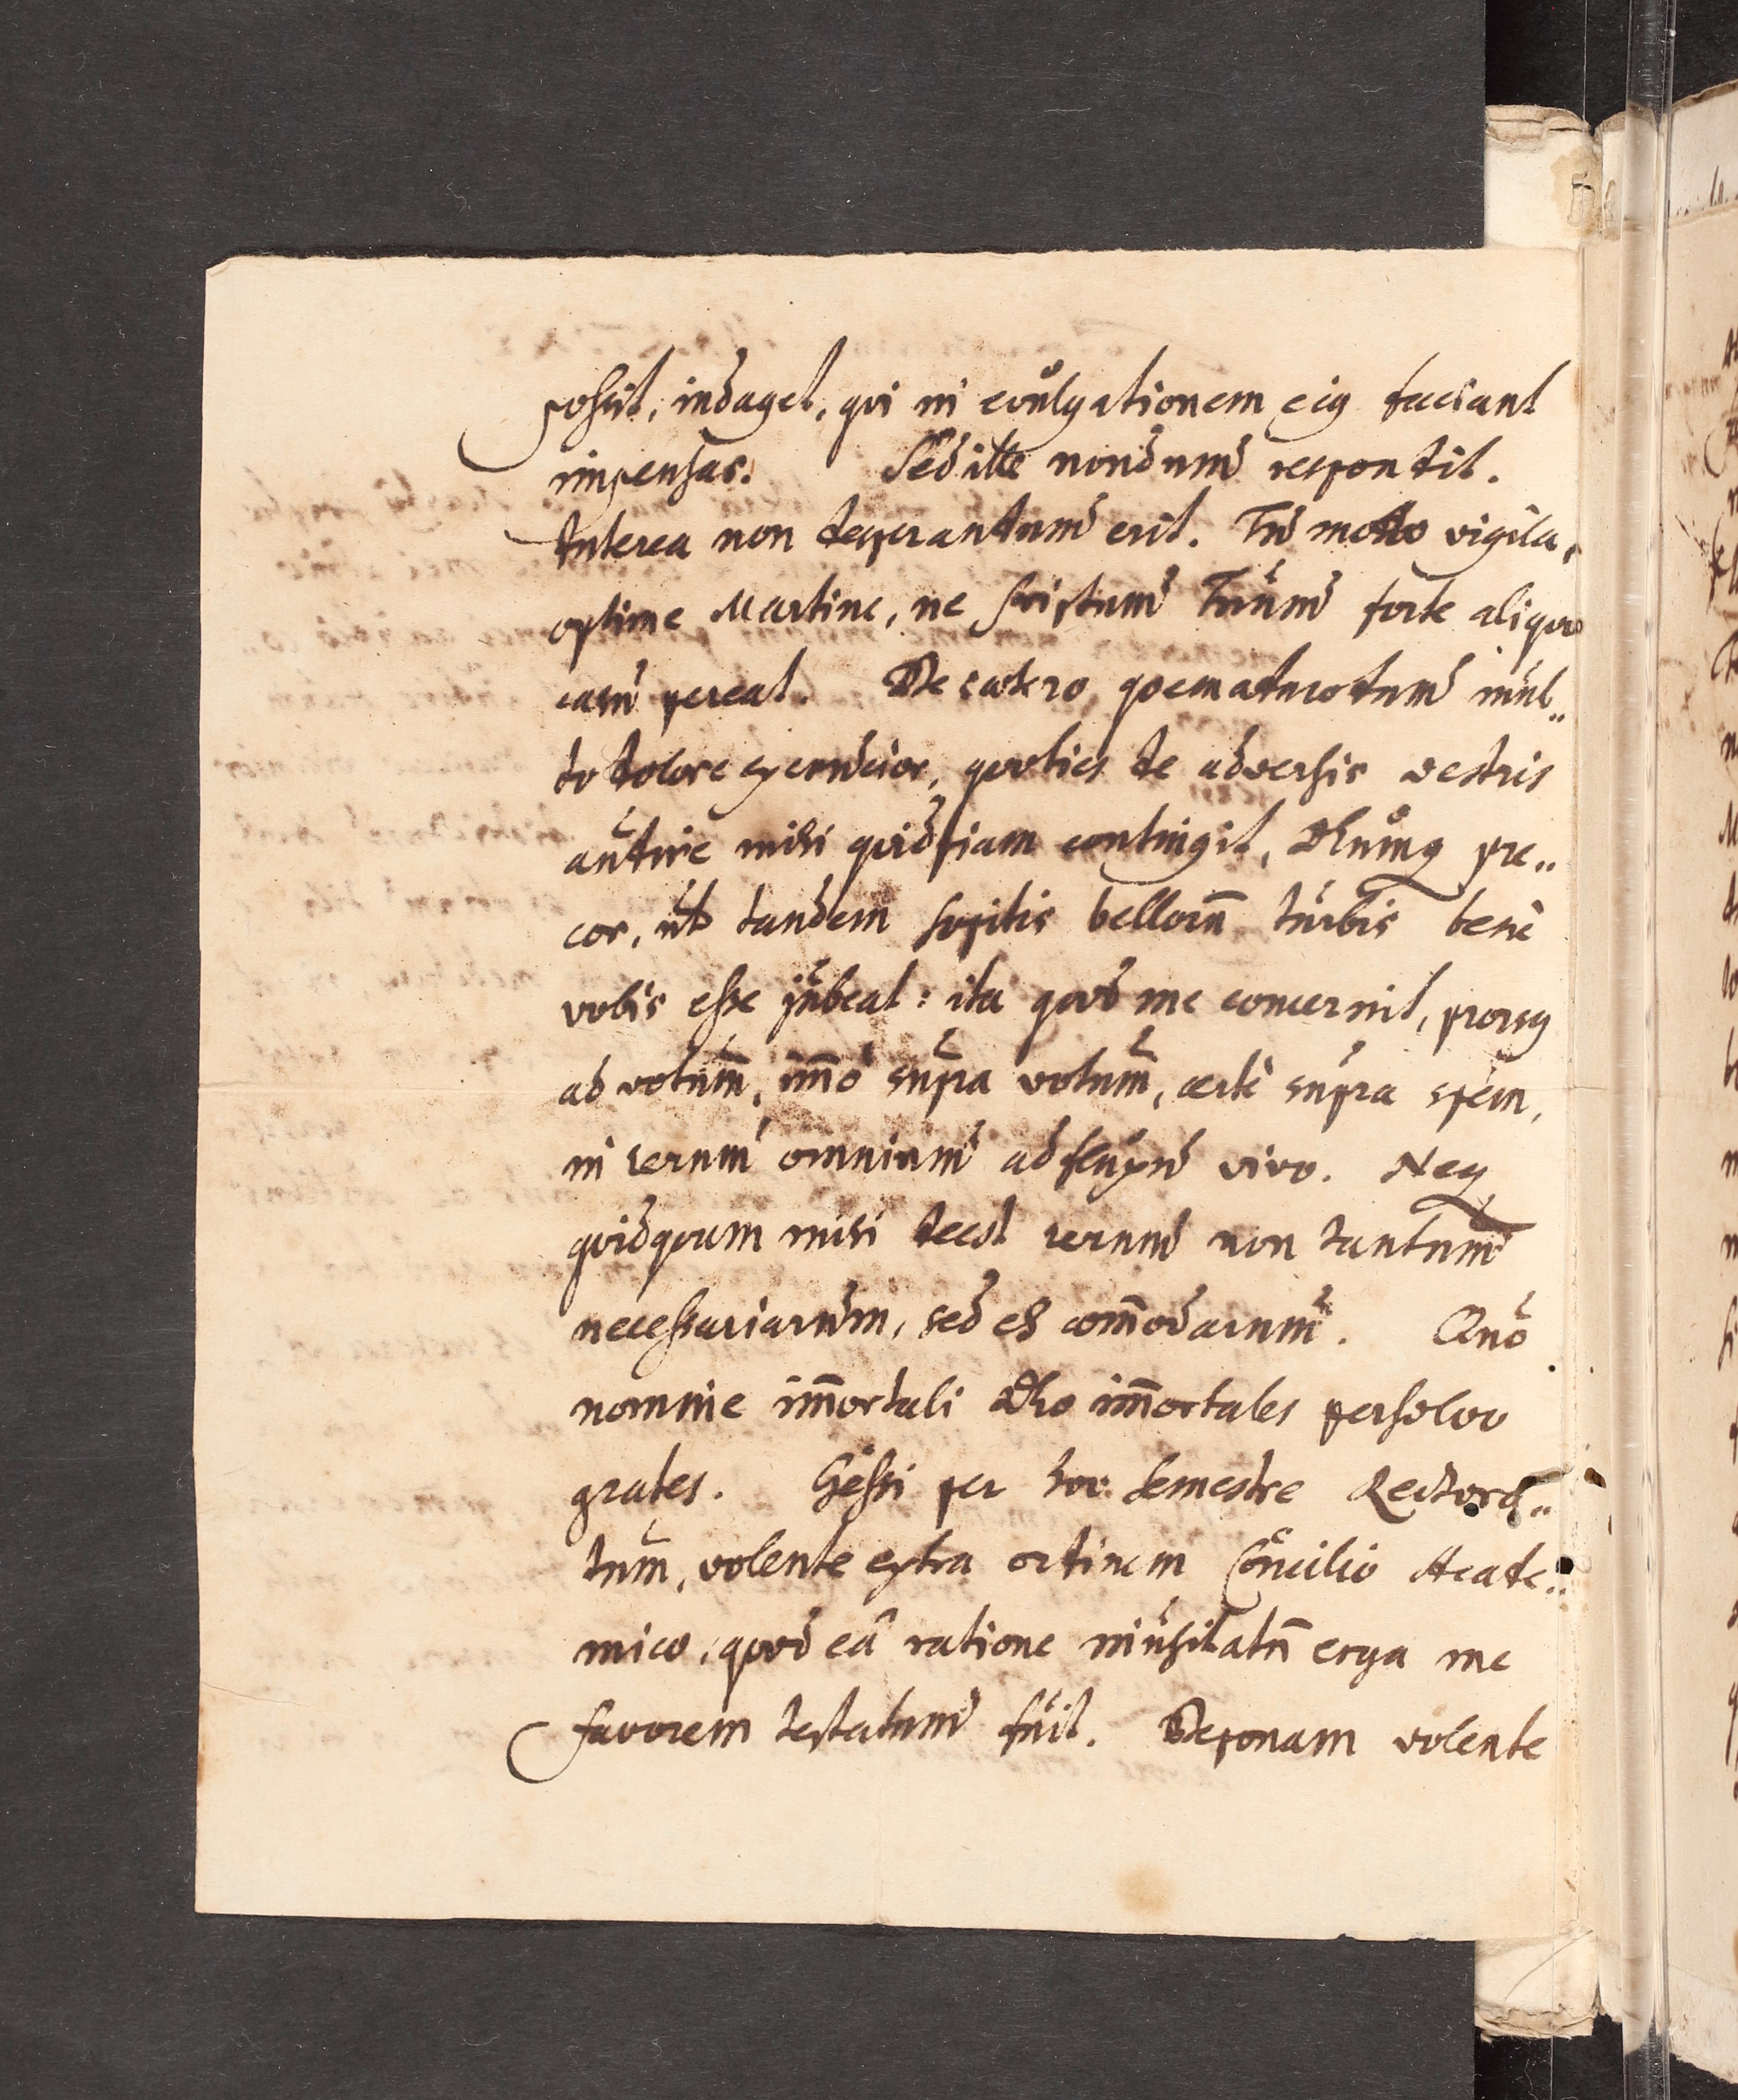 possit, indaget, qvi in evulgationem ejq faciant
impensas. Sed ille nondum respondit.
Interea non desperandum erit. Tu modo vigila,
optime Martine, ne scriptum Tuum forte aliqvo
casu pereat. De cætero qvemadmodum mul„
to dolore excrucior, qvoties de adversis vestris
audire mihi qvidpiam contingit, Deumq pre„
cor, ut tandem sopitis belloru̅ turbis benè
vobis esse jubeat: ita qvod me concernit, prorsq
ad votum̅, im̅ò supra votum̅, certè supra spem,
in rerum omnium adfluxu vivo. Neq
qvidqvam mihi deest rerum non tantum
necessariarum, sed et com̅odarum. Qvo
nomine im̅ortali Deo im̅ortales persolvo
grates. Gessi per hoc semestre Rectora„
tum, volente extra ordinem Concilio Acade„
mico, qvod eâ ratione inusitatu̅ erga me
favorem testatum fuit. Deponam volente